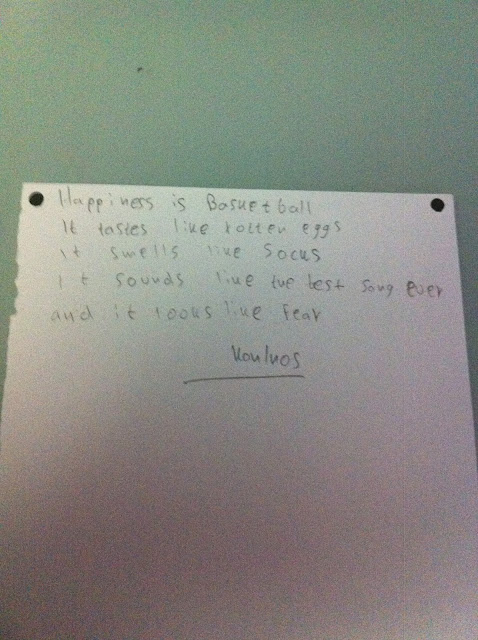 Happiness is Basketball
It tastes like rotten eggs
it smells like socks
It sounds like the best song ever
and it looks like fear